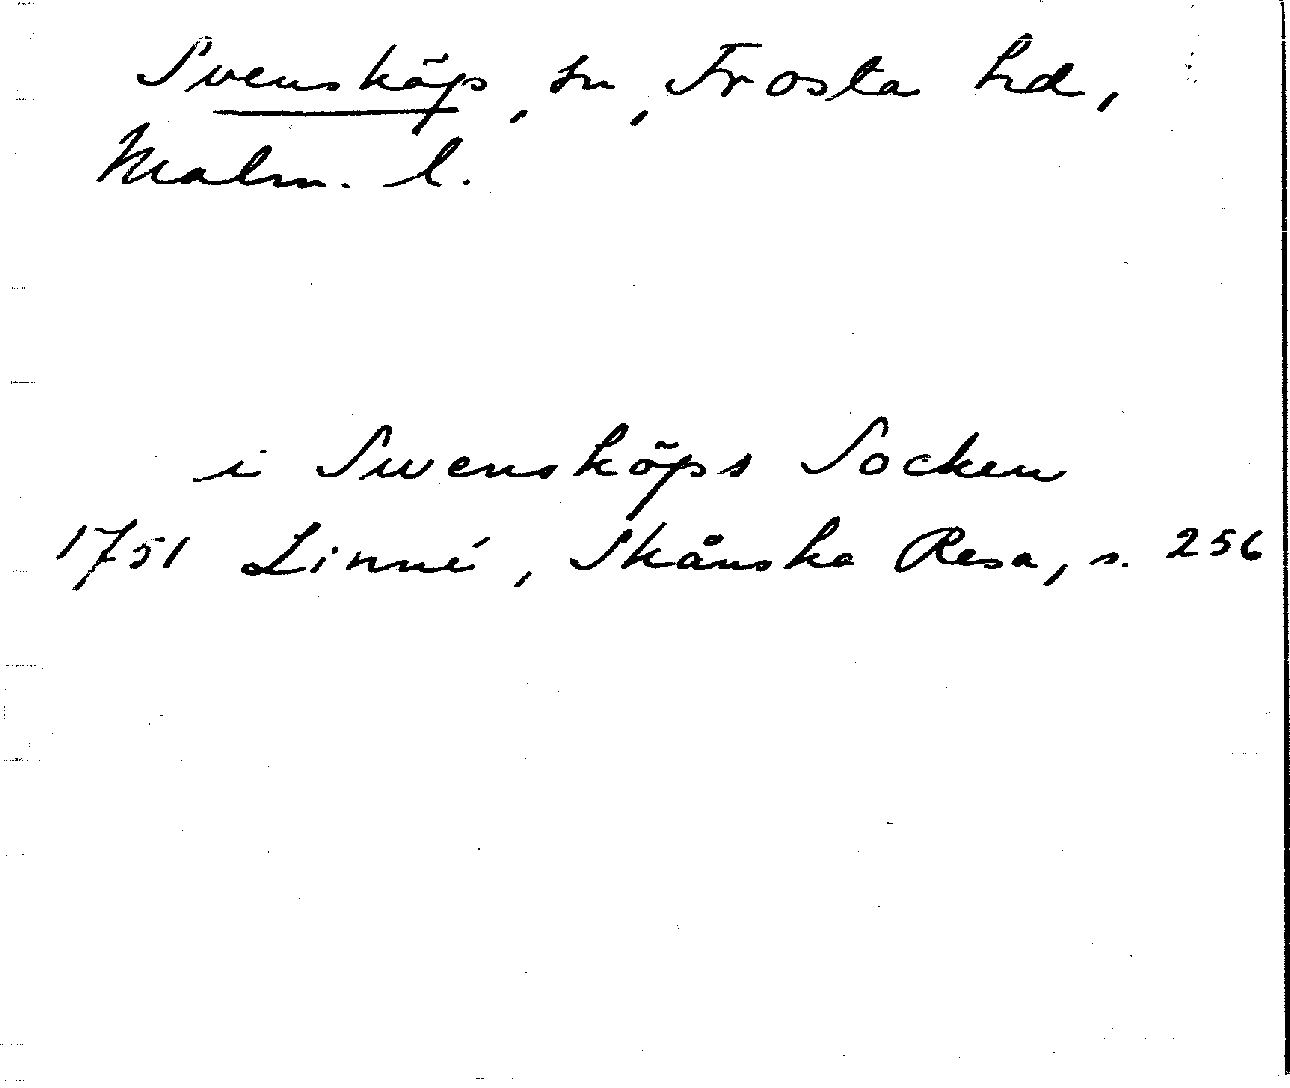 Svensköp, sn, Frosta hd,
Malm. l.
i Swensköps Socken
1751 Linné, Skånska Resa, s. 256